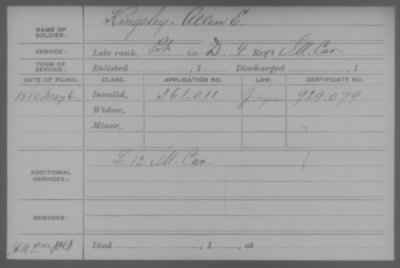 NAME OF SOLDIER: Kingsley, Allen E.
SERVICE: Late rank, Pvt Co. D, 4 Reg't Ill. Cav.
TERM OF SERVICE: Enlisted , 1 Discharged , 1
DATE OF FILING. CLASS. APPLICATION NO. LAW. CERTIFICATE NO.
1880 May 6. Invalid, 361.011 929.079
Widow,
Minor,
ADDITIONAL SERVICES: L. 12 Ill. Cav.
REMARKS:
Died , 1 , at